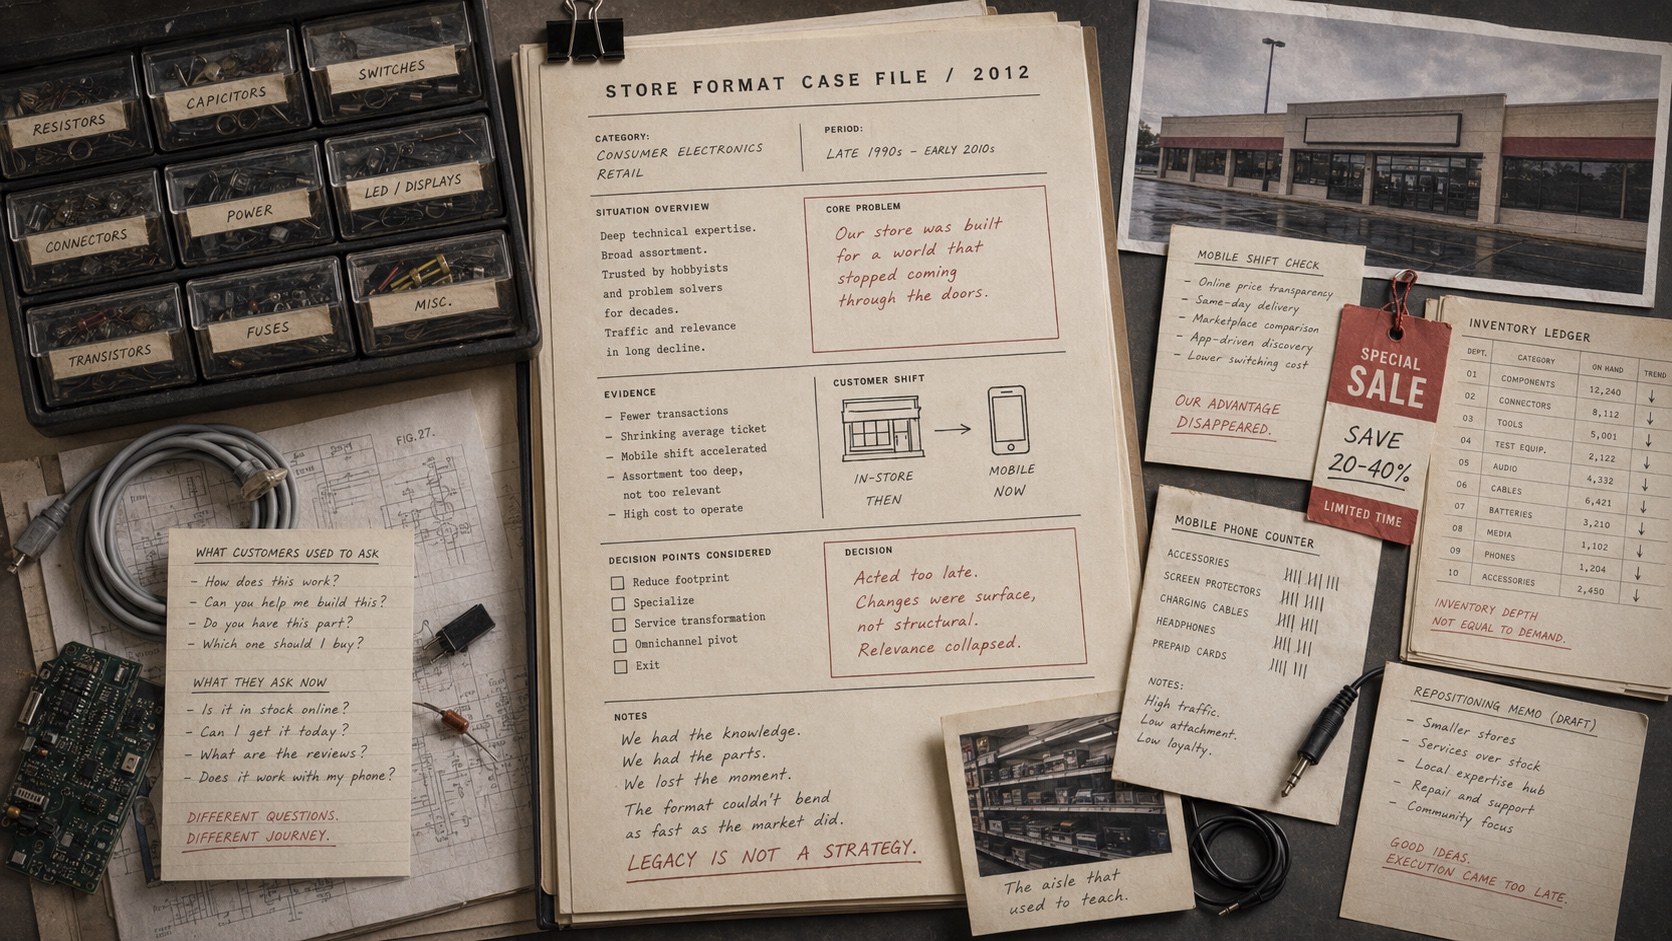 RESISTORS
CAPICITORS
SWITCHES
CONNECTORS
POWER
LED / DISPLAYS
TRANSISTORS
FUSES
MISC.
FIG.27.
WHAT CUSTOMERS USED TO ASK
– How does this work?
– Can you help me build this?
– Do you have this part?
– Which one should I buy?
WHAT THEY ASK NOW
– Is it in stock online?
– Can I get it today?
– What are the reviews?
– Does it work with my phone?
DIFFERENT QUESTIONS.
DIFFERENT JOURNEY.
STORE FORMAT CASE FILE / 2012
CATEGORY:
CONSUMER ELECTRONICS
RETAIL
PERIOD:
LATE 1990s – EARLY 2010s
SITUATION OVERVIEW
Deep technical expertise.
Broad assortment.
Trusted by hobbyists
and problem solvers
for decades.
Traffic and relevance
in long decline.
CORE PROBLEM
Our store was built
for a world that
stopped coming
through the doors.
EVIDENCE
– Fewer transactions
– Shrinking average ticket
– Mobile shift accelerated
– Assortment too deep,
not too relevant
– High cost to operate
CUSTOMER SHIFT
IN-STORE
THEN
MOBILE
NOW
DECISION POINTS CONSIDERED
Reduce footprint
Specialize
Service transformation
Omnichannel pivot
Exit
DECISION
Acted too late.
Changes were surface,
not structural.
Relevance collapsed.
NOTES
We had the knowledge.
We had the parts.
We lost the moment.
The format couldn't bend
as fast as the market did.
LEGACY IS NOT A STRATEGY.
The aisle that
used to teach.
MOBILE SHIFT CHECK
– Online price transparency
– Same-day delivery
– Marketplace comparison
– App-driven discovery
– Lower switching cost
OUR ADVANTAGE
DISAPPEARED.
SPECIAL
SALE
SAVE
20-40%
LIMITED TIME
MOBILE PHONE COUNTER
ACCESSORIES
SCREEN PROTECTORS
CHARGING CABLES
HEADPHONES
PREPAID CARDS
NOTES:
High traffic.
Low attachment.
Low loyalty.
INVENTORY LEDGER
DEPT. CATEGORY ON HAND TREND
01 COMPONENTS 12,240 ↓
02 CONNECTORS 8,112 ↓
03 TOOLS 5,001 ↓
04 TEST EQUIP. 2,122 ↓
05 AUDIO 4,332 ↓
06 CABLES 6,421 ↓
07 BATTERIES 3,210 ↓
08 MEDIA 1,102 ↓
09 PHONES 1,204 ↓
10 ACCESSORIES 2,450 ↓
INVENTORY DEPTH
NOT EQUAL TO DEMAND.
REPOSITIONING MEMO (DRAFT)
– Smaller stores
– Services over stock
– Local expertise hub
– Repair and support
– Community focus
GOOD IDEAS.
EXECUTION CAME TOO LATE.